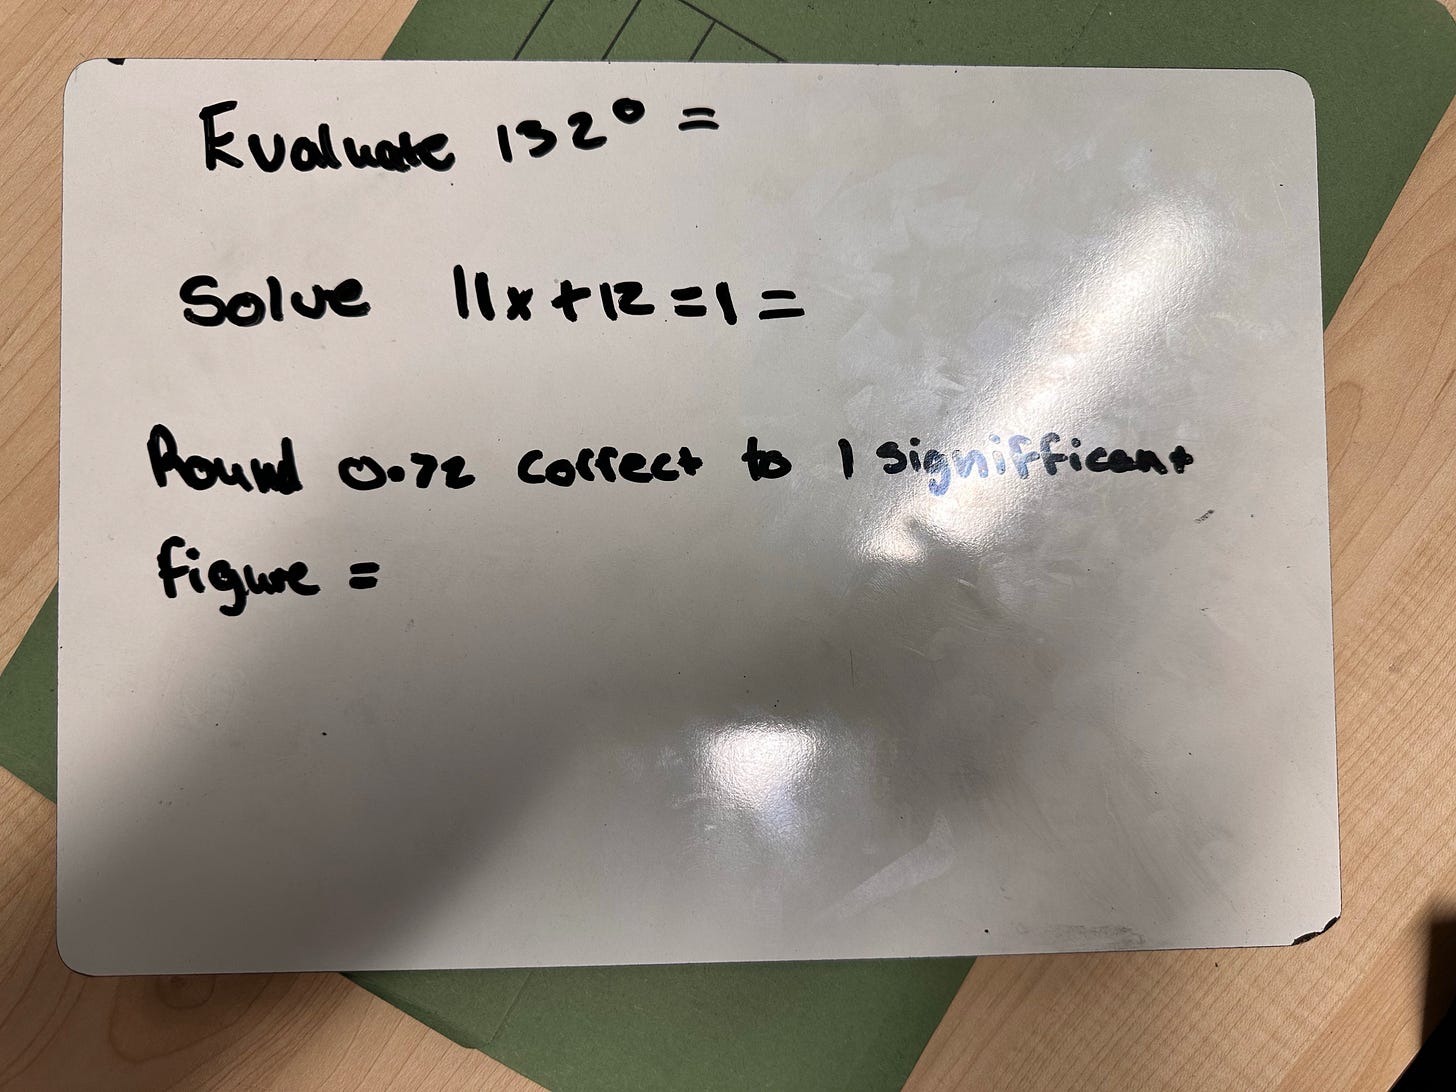 Evaluate 132⁰ =
Solve 11x + 12 = 1 =
Round 0.72 correct to 1 signifficant
figure =